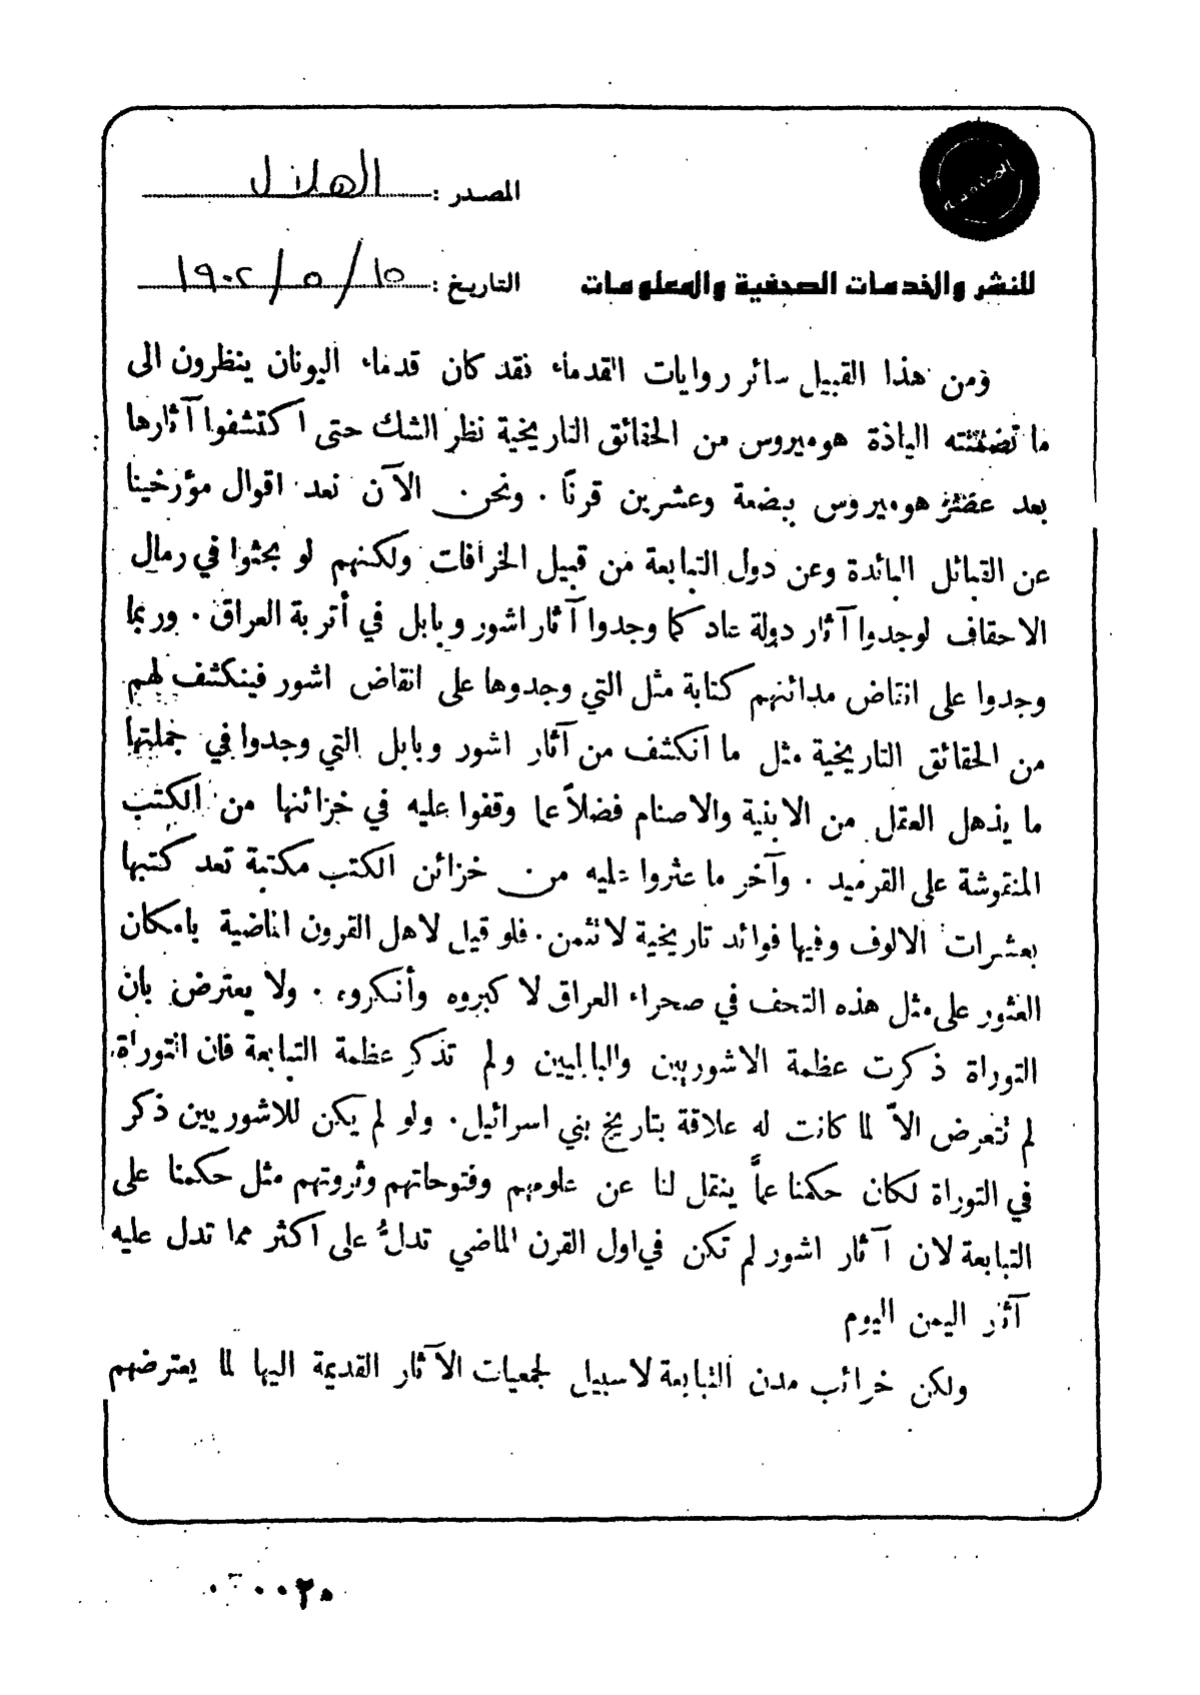 المصدر : الهلال
للنشر والخدمات الصحفية والمعلومات
التاريخ : ١٥ / ٥ / ١٩٠٢
ومن هذا القبيل سائر روايات القدماء فقد كان قدماء اليونان ينظرون الى
ما تضمنته الياذة هوميروس من الحقائق التاريخية نظر الشك حتى اكتشفوا آثارها
بعد عصر هوميروس ببضعة وعشرين قرنًا . ونحن الآن نعد اقوال مؤرخينا
عن القبائل البائدة وعن دول التبابعة من قبيل الخرافات ولكنهم لو بحثوا في رمال
الاحقاف لوجدوا آثار دولة عاد كما وجدوا آثار اشور وبابل في أتربة العراق . وربما
وجدوا على انقاض مدائنهم كتابة مثل التي وجدوها على انقاض اشور فينكشف لهم
من الحقائق التاريخية مثل ما انكشف من آثار اشور وبابل التي وجدوا في جملتها
ما يذهل العقل من الابنية والاصنام فضلاً عما وقفوا عليه في خزائنها من الكتب
المنقوشة على القرميد . وآخر ما عثروا عليه من خزائن الكتب مكتبة تعد كتبها
بعشرات الالوف وفيها فوائد تاريخية لا تثمن . فلو قيل لاهل القرون الماضية بامكان
العثور على مثل هذه التحف في صحراء العراق لا كبروه وأنكروه . ولا يعترض بان
التوراة ذكرت عظمة الاشوريين والبابليين ولم تذكر عظمة التبابعة فان التوراة
لم تتعرض الاّ لما كانت له علاقة بتاريخ بني اسرائيل . ولو لم يكن للاشوريين ذكر
في التوراة لكان حكمنا عماَّ ينقل لنا عن علومهم وفتوحاتهم وثروتهم مثل حكمنا على
التبابعة لان آثار اشور لم تكن في اول القرن الماضي تدلُّ على اكثر مما تدل عليه
آثار اليمن اليوم
ولكن خرائب مدن التبابعة لا سبيل لجمعيات الآثار القديمة اليها لما يعترضهم